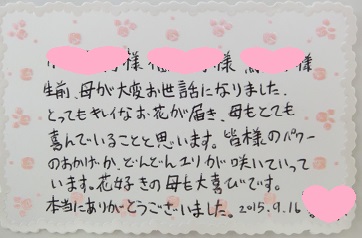 様 様 様
生前、母が大変お世話になりました。
とってもキレイなお花が届き、母もとても
喜んでいることと思います。皆様のパワー
のおかげか、どんどんユリが咲いていって
います。花好きの母も大喜びです。
本当にありがとうございました。2015.9.16